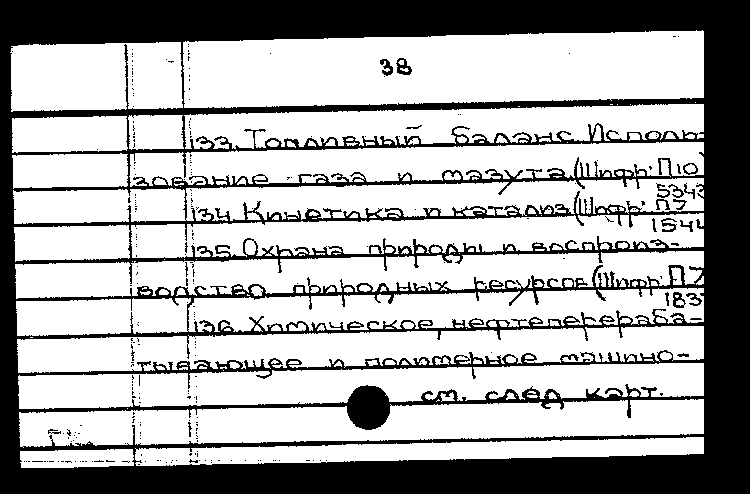 38
133. Топливный баланс. Исполь-
зование газа и мазута. (Шифр: П10
5343
134. Кинетика и катализ (Шифр: П7
1544
135. Охрана природы и воспроиз-
водство природных ресурсов (Шифр: П7
1837
136. Химическое, нефтеперераба-
тывающее и полимерное машино-
см. след карт.